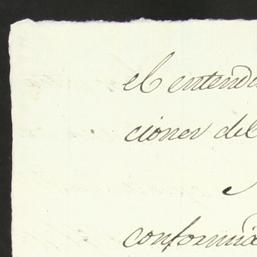 el entendi
ciones del
conformid